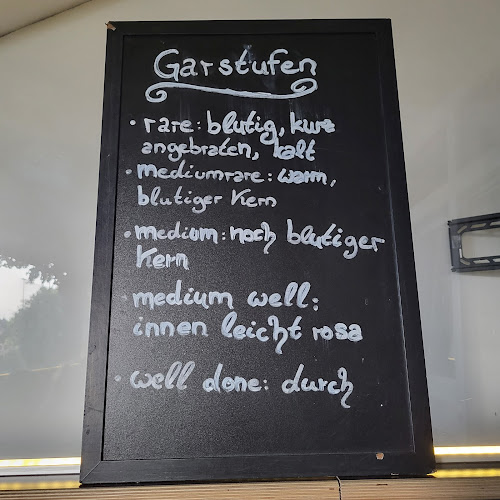 Garstufen
• rare: blutig, kurz
angebraten, kalt
• mediumrare: warm,
blutiger Kern
• medium: noch blutiger
Kern
• medium well:
innen leicht rosa
• well done: durch